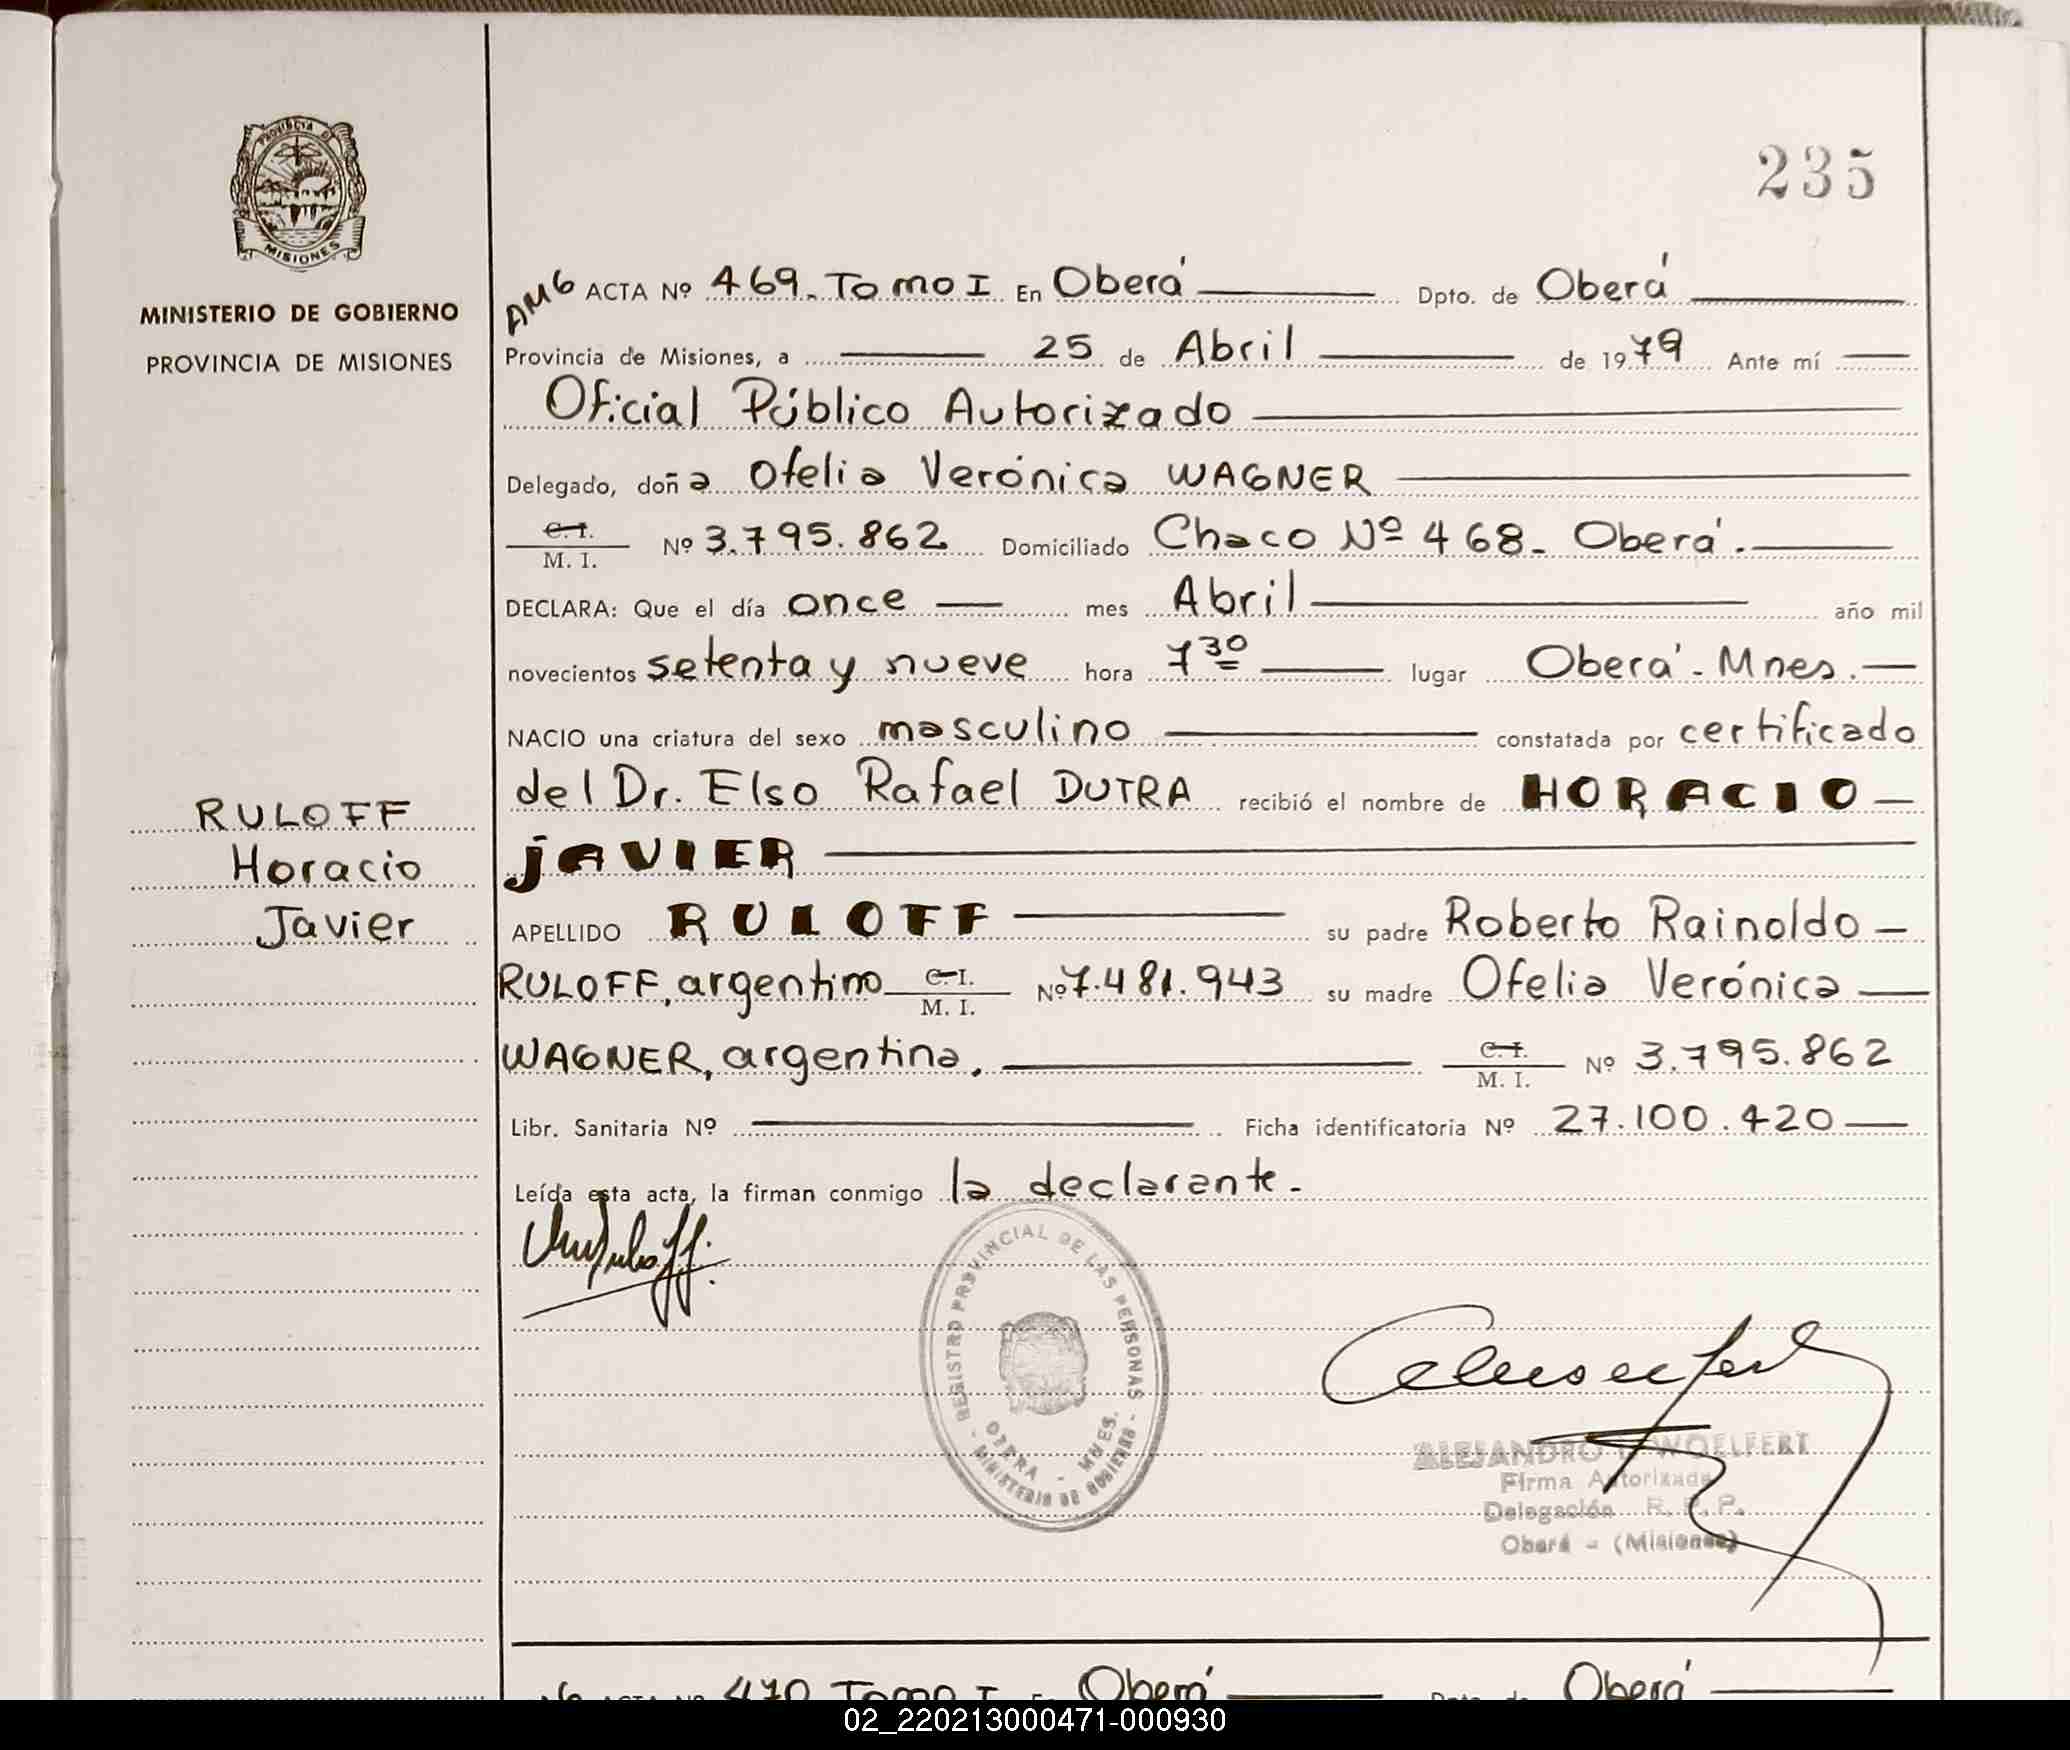 PROVINCIA DE
MISIONES
MINISTERIO DE GOBIERNO
PROVINCIA DE MISIONES
235
AM6 ACTA Nº 469. Tomo I En Oberá Dpto. de Oberá
Provincia de Misiones, a 25 de Abril de 1979 Ante mí
Oficial Público Autorizado
Delegado, doña Ofelia Verónica WAGNER
C. I.
M. I. Nº 3.795.862 Domiciliado Chaco Nº 468- Oberá.
DECLARA: Que el día once mes Abril año mil
novecientos setenta y nueve hora 7 30 lugar Oberá - Mnes.
NACIO una criatura del sexo masculino constatada por certificado
del Dr. Elso Rafael DUTRA recibió el nombre de HORACIO
JAVIER
RULOFF
Horacio
Javier
APELLIDO RULOFF su padre Roberto Rainoldo
RULOFF, argentino C. I. M. I. Nº 7.481.943 su madre Ofelia Verónica
WAGNER, argentina. C. I. M. I. Nº 3.795.862
Libr. Sanitaria Nº Ficha identificatoria Nº 27.100.420
Leída esta acta, la firman conmigo la declarante.-
REGISTRO PROVINCIAL DE LAS PERSONAS
OBERA - MNES.
- MINISTERIO DE GOBIERNO -
ALEJANDRO WOELFERT
Firma Autorizada
Delegación R. P. P.
Oberá - (Misiones)
ACTA Nº 470 Tomo I En Oberá Dpto. de Oberá
02_220213000471-000930